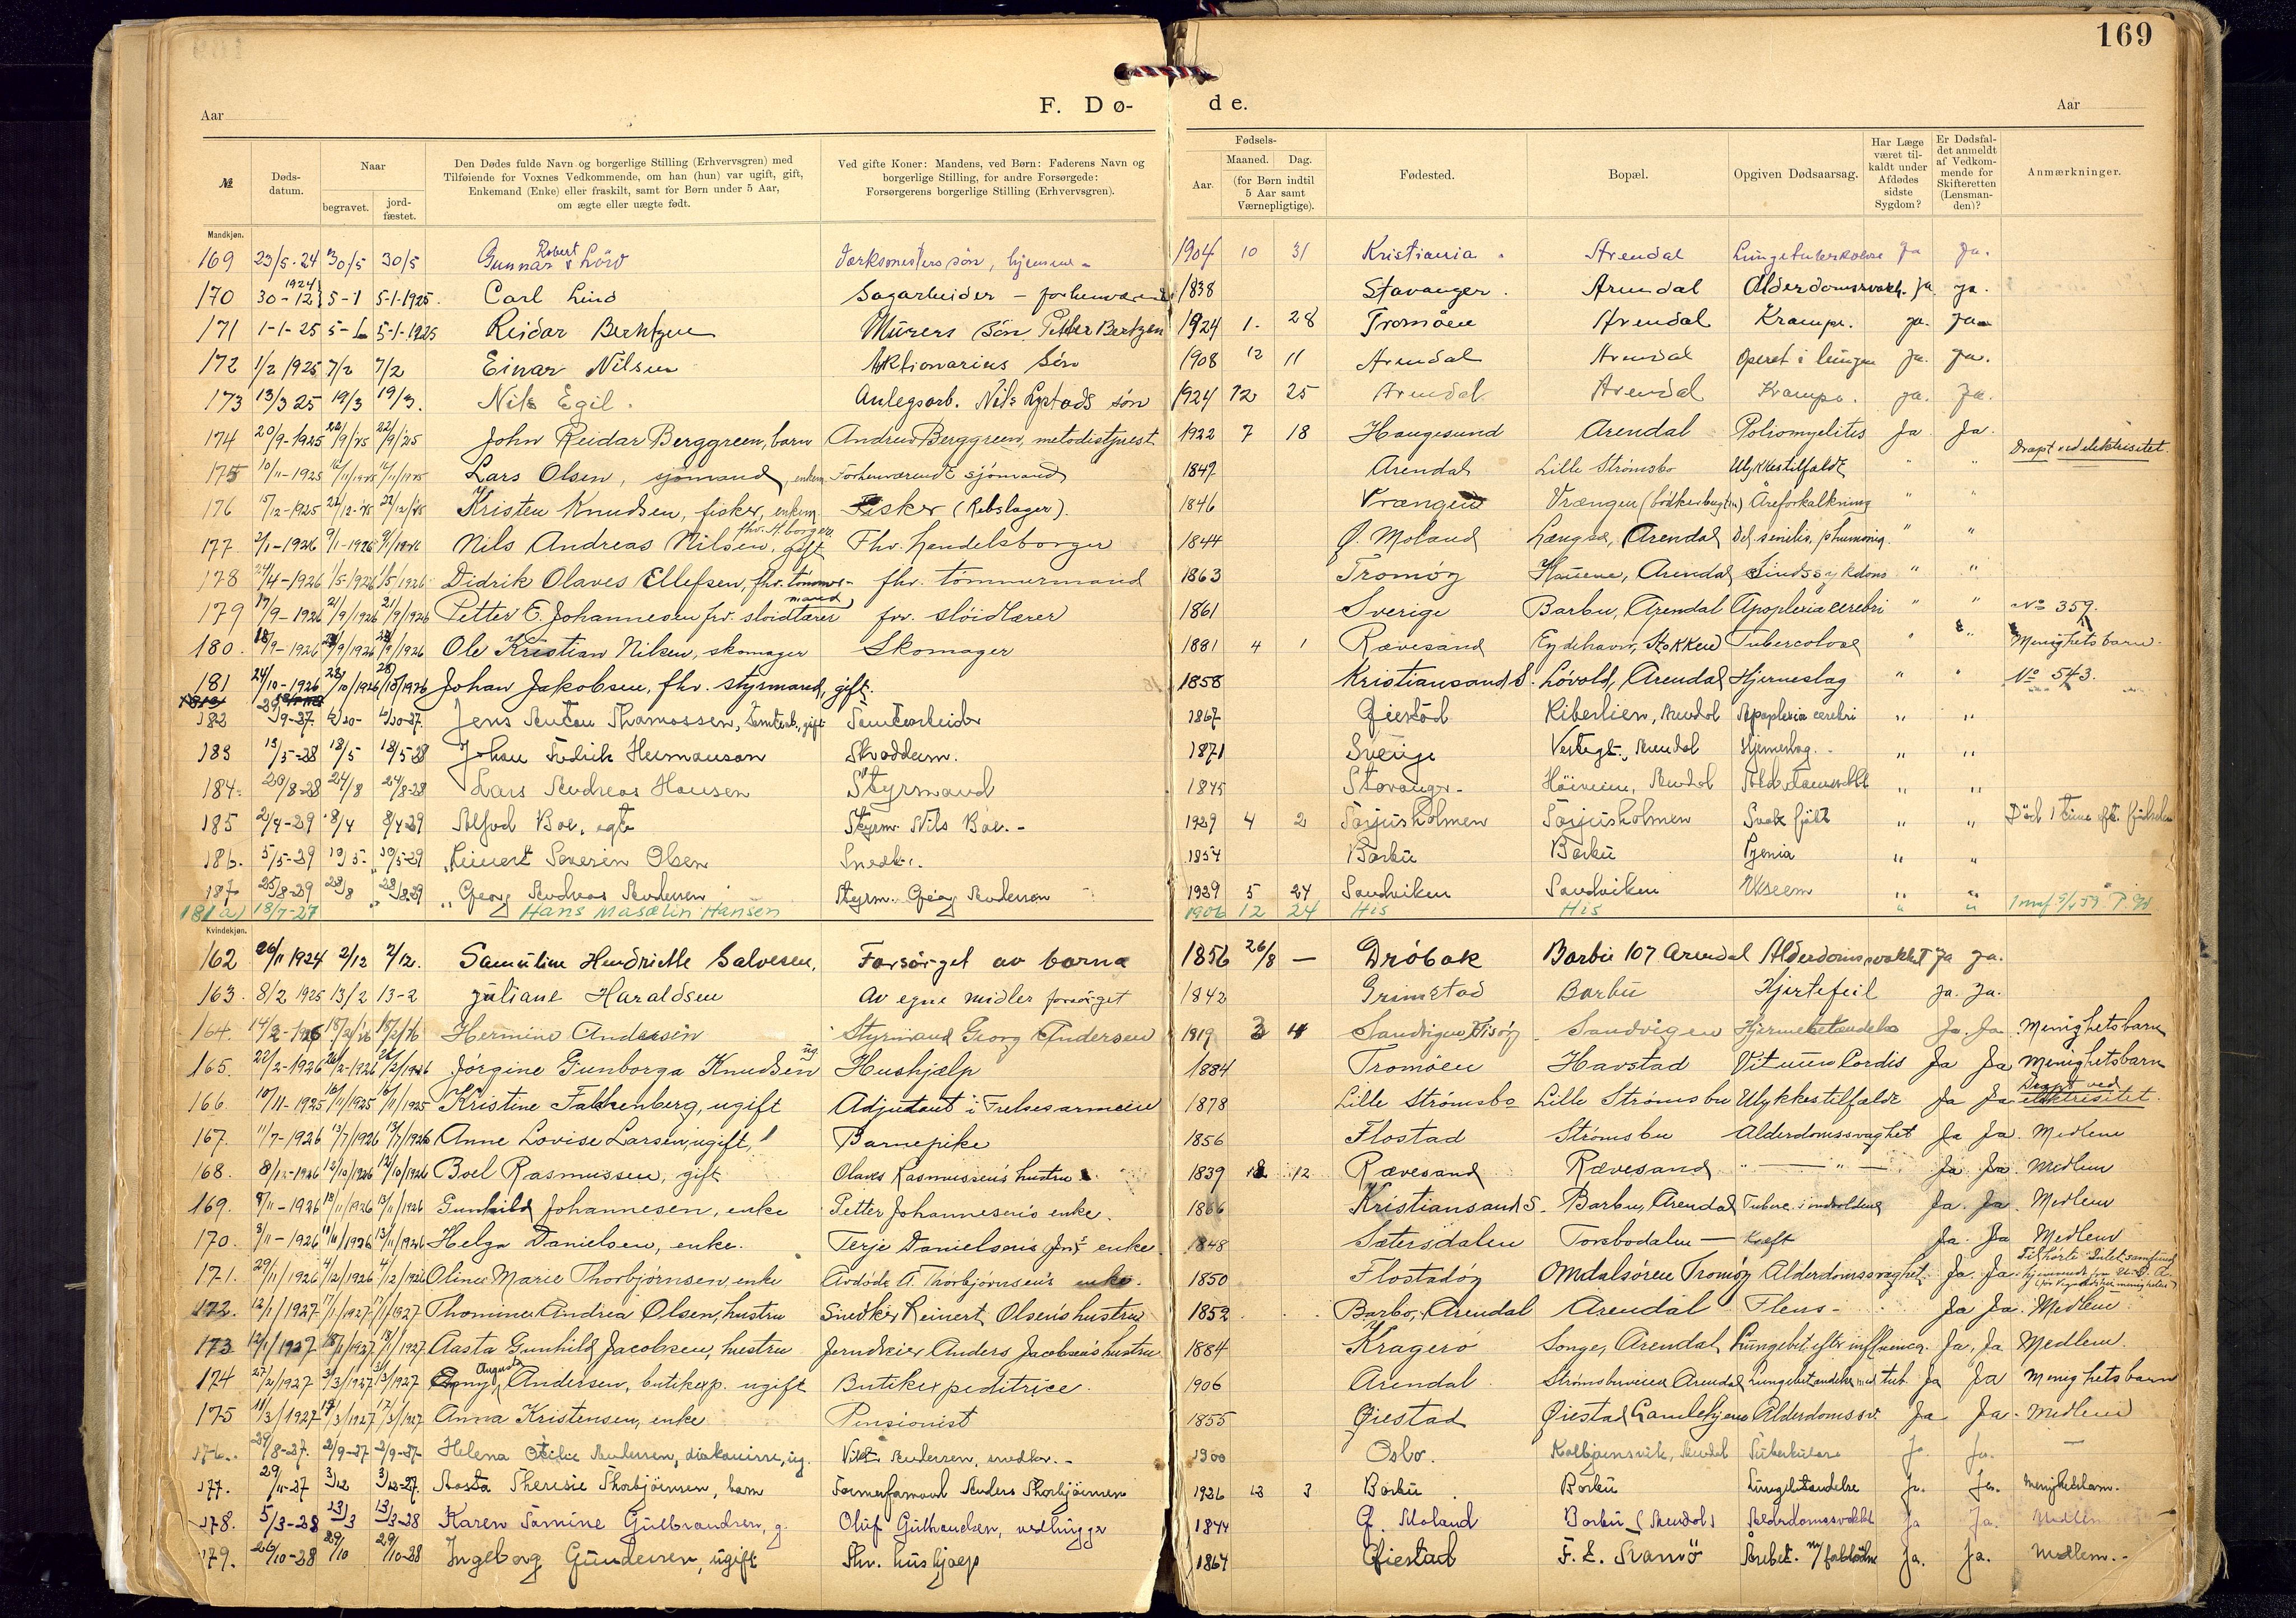 169
Aar
F. Dø-
de.
Aar
№
Døds-
datum.
Naar
begravet.
jord-
fæstet.
Den Dødes fulde Navn og borgerlige Stilling (Erhvervsgren) med
Tilføiende for Voxnes Vedkommende, om han (hun) var ugift, gift,
Enkemand (Enke) eller fraskilt, samt for Børn under 5 Aar,
om ægte eller uægte født.
Ved gifte Koner: Mandens, ved Børn: Faderens Navn og
borgerlige Stilling, for andre Forsørgede:
Forsørgerens borgerlige Stilling (Erhvervsgren).
Fødsels-
Aar.
Maaned.
Dag.
(for Børn indtil
5 Aar samt
Værnepligtige).
Fødested.
Bopæl.
Opgiven Dødsaarsag.
Har Læge
været til-
kaldt under
Afdødes
sidste
Sygdom?
Er Dødsfal-
det anmeldt
af Vedkom-
mende for
Skifteretten
(Lensman-
den)?
Anmærkninger.
Mandkjøn.
169 23/5-24 30/5 30/5 Gunnar Robert 1904 10 31 Kristiania Arendal Lungetuberkulose Ja Ja.
170 30-12 1924 5-1 5-1-1925. Carl Lind Sagarbeider - 1838 Stavanger. Arendal ja. ja.
171 1-1-25 5-1 5-1-1925 Reidar Berntzen Murers søn Petter Bertzen 1924 1. 28 Tromøen Arendal Krampe. ja. ja.
172 1/2 1925 7/2 7/2 Einar Nilsen søn 1908 12 11 Arendal Arendal Operet i lungen Ja. ja.
173 13/3 25 19/3 19/3. Nils Egil. Anlegsarb. Nils søn 1924 12 25 Arendal Arendal Krampe. ja. ja.
174 20/9-1925 22/9/25 22/9/25 John Reidar Berggreen, barn Andrew Berggreen, metodistprest 1922 7 18 Haugesund Arendal Poliomyelites Ja Ja.
175 10/11-1925 16/11/1925 16/11/1925 Lars Olsen, sjømand, enkem. Forhenværende sjømand 1847 Arendal Lille Strømsbo Ulykkestilfælde " " Dræpt ved elektrisitet.
176 15/12-1925 22/12-25 22/12/25 Kristen Knudsen, fisker, enkem. Fisker (Rebslager). 1846 Vrængen Vrængen Åreforkalkning " "
177. 2/1-1926 9/1-1926 9/1/1926 Nils Andreas Nilsen, gift Fhv. handelsborger 1844 Ø. Moland Længsæ, Arendal " "
178 24/4-1926 1/5/1926 1/5/1926 Didrik Olaves Ellefsen, fhv. tømmer-
mand fhv. tømmermand 1863 Tromøy Hauene, Arendal Sindssykdom " "
179 17/9-1926 21/9/1926 21/9/1926 Petter E. Johannesen frv. sløidlærer frv. sløidlærer 1861 Sverige Barbu, Arendal Apoplexia cerebri " " No 359.
180. 18/9-1926 /9/1926 /9/1926 Ole Kristian Nilsen, skomager Skomager 1881 4 1 Rævesand Eydehavn, Stokken Tubercolose " " Menighetsbarn.
181 24/10-1926 28/10/1926 28/10/1926 Johan Jakobsen, fhv. styrmand, gift. 1858 Kristiansand S. Løvold, Arendal Hjerneslag " " No 543.
182 29/9-27. Jens Anton Thomassen, gift 1867 Øiestad Arendal Apoplexia cerebri " "
183 13/5-28 18/5 18/5-28 Johan Fredrik Hermanson Skreddem. 1871 Sverige Arendal Hjerneslag. " "
184. 20/8-28 24/8 24/8-28 Lars Andreas Hansen Styrmand 1845 Stavanger - Arendal " "
185 2/4-29 8/4 8/4-29 Boe, egte Styrm. Nils Boe. - 1929 4 2 Torjusholmen Torjusholmen Svak født " " Død 1 time eft. fødselen
186. 5/5-29 10/5- 10/5-29 Reinert Severin Olsen Snedk. 1854 Barbu Barbu " "
187 25/8-29 28/8 28/8-29 Georg Andreas Andersen Styrm. Georg Andersen 1929 5 24 Sandviken Sandviken Eksem " "
181a) 18/7-27 Hans Maselin Hansen 1906 12 24 His His " "
Kvindekjøn.
162 26/11 1924 2/12 2/12. Samuline Hendriette Salvesen. Forsørget av barna 1856 26/8 - Drøbak Barbu 107 Arendal Alderdomssvakket Ja ja.
163. 8/2 1925 13/2 13-2 Juliane Haraldsen Av egne midler forsørget 1842 Grimstad Barbu Hjertefeil Ja. Ja.
164. 14/2-1926 18/2/26 18/2/26 Hermine Andersen Styrmand Georg Andersen Sandvigen, Hisøy Sandvigen Ja. Ja. Menighetsbarn
165. 22/2-1926 26/2-1926 26/2/1926 Jørgine Gunborga Knudsen ug. Hushjælp 1884 Tromøen Havstad Vitium Cordis Ja Ja Menighetsbarn
166 10/11-1925 16/11/1925 16/11/1925 Kristine Falkenberg, ugift Adjutant i Frelsesarmeen 1878 Lille Strømsbo Lille Strømsbu Ulykkestilfælde Ja Ja Dræpt ved
elektrisitet.
167. 11/7-1926 13/7/1926 13/7/1926 Anne Lovise Larsen, ugift, Barnepike 1856 Flostad Strømsbu Alderdomssvaghet Ja Ja. Medlem
168. 8/12-1926 12/10/1926 12/10/1926 Boel Rasmussen, gift Olaves Rasmussens hustru 1839 12 Rævesand Rævesand " - " - Ja. Ja. Medlem
169. 8/11-1926 13/11/1926 13/11/1926 Gunhild Johannesen, enke Petter Johannesens enke. 1866 Kristiansand S. Barbu, Arendal Ja. Ja. Medlem
170. 8/11-1926 /11/1926 13/11/1926 Helga Danielsen, enke. Terje Danielsens enke. 1848 Sætersdalen Torsbodalen - Kræft Ja. Ja Medlem
171. 29/11/1926 4/12/1926 4/12/1926 Oline Marie Thorbjørnsen enke Avdøde A. Thorbjørnsens enke. 1850 Flostadøy Omdalsøren Tromøy Alderdomssvaghet Ja. Ja.
172. 12/1/1927 17/1/1927 17/1/1927 Thomine Andrea Olsen, hustru Snedker Reinert Olsens hustru 1852 Barbo, Arendal Arendal Ja Ja. Medlem
173 12/1/1927 18/1/1927 18/1/1927 Aasta Gunhild Jacobsen, hustru Jerndreier Anders Jacobsens hustru 1884 Kragerø Songe, Arendal Lungebet. efter influensa. Ja, Ja Medlem.
174 27/2/1927 3/3/1927 3/3/1927 Augusta Andersen, butikexp. ugift Butikexpeditrice. 1906 Arendal Strømsbuveien Arendal Lungebetændelse med tub. Ja Ja Menighetsbarn
175 11/3/1927 17/3/1927 17/3/1927 Anna Kristensen, enke Pensionist 1855 Øiestad Øiestad Gamlehjem Alderdomssv. Ja Ja. Medlem
176. 29/8-27. 2/9-27 2/9-27 Helena Otilie Andersen, diakonisse, ug. Andersen, snedker. - 1900 Oslo. Kolbjørnsvik, Arendal Tuberkulose Ja. Ja. -
177. 29/11-27 3/12 3/12-27. Aasta Theresie Thorbjørnsen, barn Formerformand Anders Thorbjørnsen 1926 12 3 Barbu Barbu Lungebetændelse Ja. Ja. Menighetsbarn.
178. 5/3-28 13/3 13/3-28 Karen Tomine Gulbrandsen, g. Oluf Gulbrandsen, vedhugger 1844 Ø. Moland Barbu (Arendal) Alderdomssvakket Ja Ja. Medlem
179. 26/10-28 29/10 29/10-28 Ingeborg Gundersen, ugift Fhv. hushjelp 1864 Øiestad Ja. Ja. Medlem. -